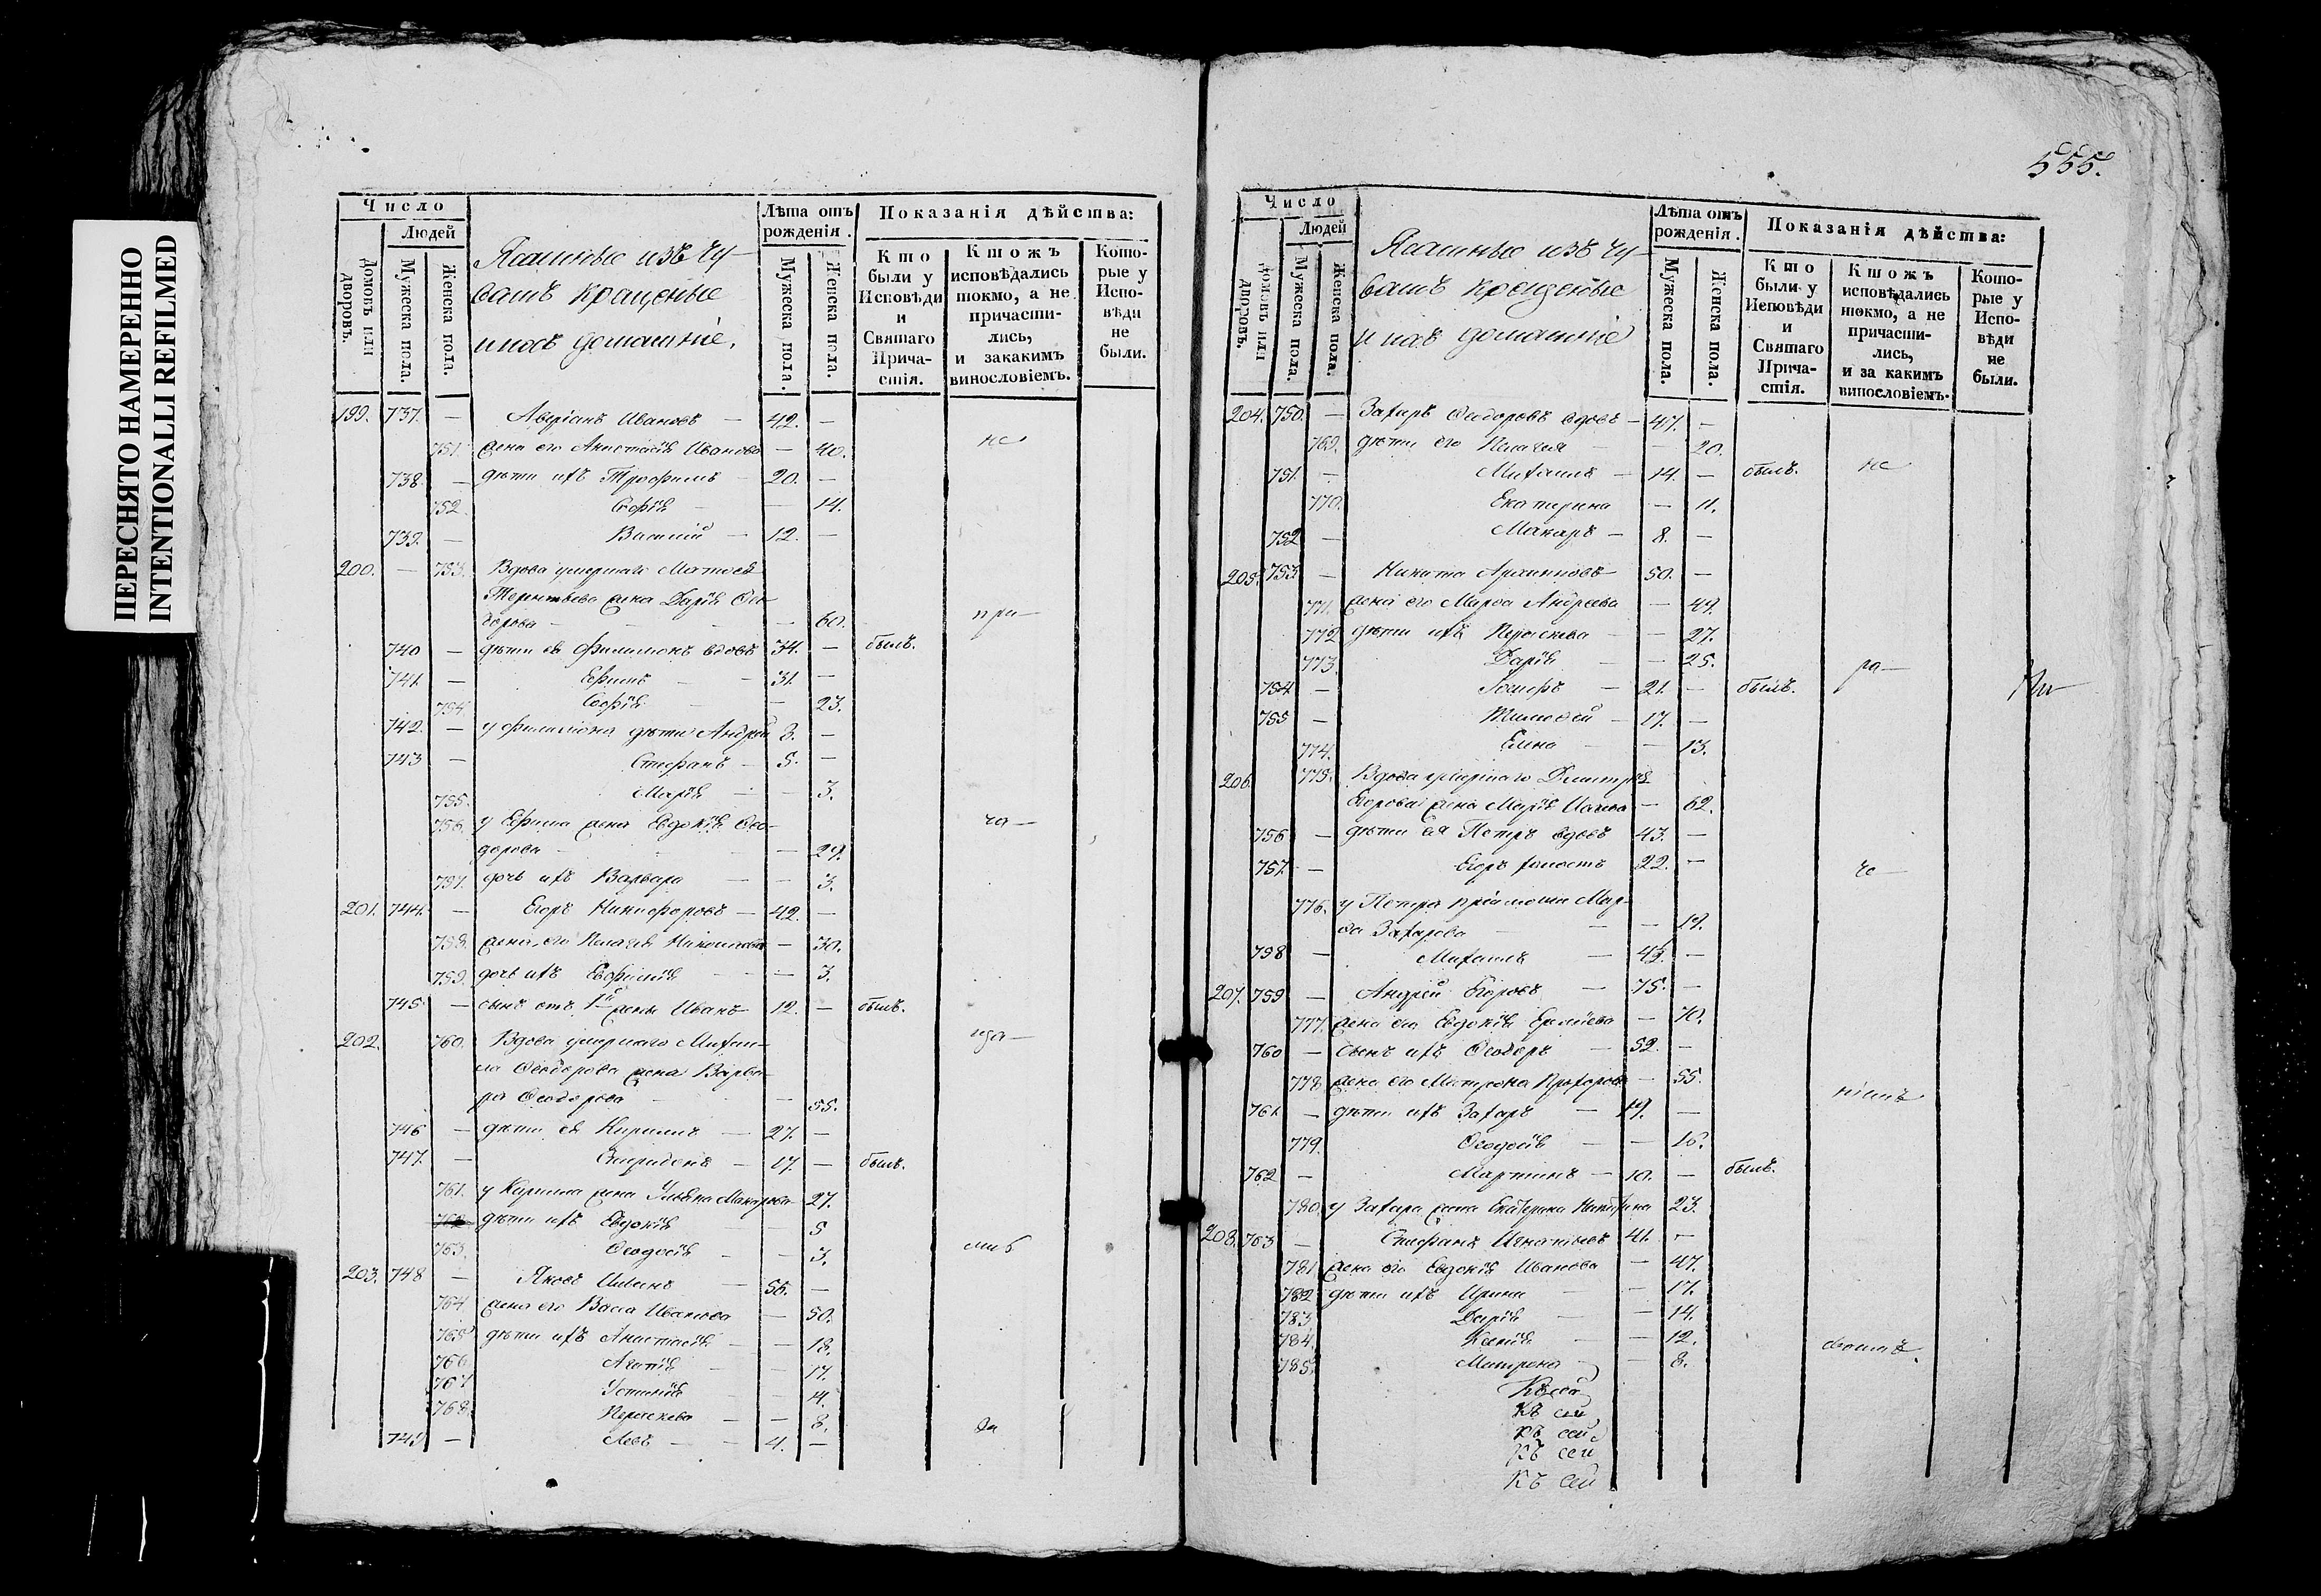 ПЕРЕСНЯТО НАМЕРЕННО
INTENTIONALLI REFILMED
Число
Людей
домовъ или дворовъ.
Мужеска пола.
Женска пола.
Ясашные изъ чу-
вашъ крещеные
и ихъ домашніе.
Лѣта отъ рожденія.
Мужеска пола.
Женска пола.
Показанія дѣйства:
Кто были у Исповѣди и Святаго Прича-стія.
Ктожъ исповѣдались токмо, а не причасти-лись, и закакимъ винословіемъ.
Кото-рые у Испо-вѣди не были.
199. 737. — Аверіанъ Ивановъ — 42. —
751 жена его Анастасія Иванова — 40. не
738. — дѣти ихъ Трофимъ — 20. —
752. Софія — — 14.
739. — Василій — 12. —
200. — 753. Вдова умершаго Матвея
Терентьева жена Дарія Ѳео-
дорова — — 60. при—
740 — дѣти ея Филимонъ вдовъ 34. — былъ.
741. — Ефимъ — 31. —
754 Софія — 23.
742. — у Филимона дѣти Андрей 8. —
743 — Стефанъ — 5. —
755. Марія — — 3.
756. у Ефима жена Евдокія Ѳео-
дорова — — 29. ча—
757. дочь ихъ Варвара — — 3.
201. 744. — Егоръ Никифоровъ — 42. —
758. жена его Пелагія Николаева — 30.
759. дочь ихъ Евфимія — — 3.
745 — сынъ отъ 1й жены Иванъ 12. — былъ.
202. 760. Вдова умершаго Михаи-
ла Ѳеодорова жена Варва-
ра Ѳеодорова — 55.
746 — дѣти ея Кирилъ — 27. —
747. — Спиридонъ — 17. — былъ.
761. у Кирила жена Ульяна Макарова — 27.
762. дѣти ихъ Евдокія — 5
763. Ѳеодосія — — 3.
203. 748 — Яковъ — 56. —
764 жена его Васа Иванова — 50.
765 дѣти ихъ Анастасія — — 18.
766 Агапія — — 17.
767 Устинія — — 14.
768. Параскева — — 8. за
749 — Левъ — — 4. —
555.
Число
Людей
домовъ или дворовъ.
Мужеска пола.
Женска пола.
Ясашные изъ чу-
вашъ крещеные
и ихъ домашніе
Лѣта отъ рожденія.
Мужеска пола.
Женска пола.
Показанія дѣйства:
Кто были у Исповѣди и Святаго Прича-стія.
Ктожъ исповѣдались токмо, а не причасти-лись, и за какимъ винословіемъ.
Кото-рые у Испо-вѣди не были.
204. 750. — Захаръ Ѳеодоровъ вдовъ — 47. —
769. дѣти его Пелагея — — 20.
751. — Михаилъ — 14. — былъ. не
770. Екатерина — 11.
752 — Макаръ — 8. —
205. 753 — Никита Архиповъ — 50. —
771. жена его Марѳа Андреева — 49.
772 дѣти ихъ Параскева — — 27.
773. Дарія — — 25. ра—
754 — Іосифъ — 21. — былъ.
755 — Тимоѳей — 17. —
774. Елена — — 13.
206. 775. Вдова умершаго Димитрія
Егорова жена Марія — 62.
756 — дѣти ея Петръ вдовъ 43. —
757. — Егоръ холостъ 22. — че—
776. у Петра Мар-
ѳа Захарова — — 19.
758 — Михаилъ — 43. —
207. 759 — Андрей Егоровъ — 75. —
777. жена его Евдокія — 70.
760 — сынъ ихъ Ѳеодоръ — 52. —
778 жена его Матрона Прохорова — 55.
761. — дѣти ихъ Захаръ — 19. —
779. Ѳеодосія — — 16.
762 — Мартинъ — 10. — былъ.
780. у Захара жена Екатерина Никитина 23.
208. 763 — Стефанъ Игнатьевъ 41. —
781 жена его Евдокія Иванова — 47.
782 дѣти ихъ Ирина — — 17.
783. Дарія — — 14.
784. Ксенія — — 12.
785. Матрона — — 8.
Къ сей
Къ сей
Къ сей
Къ сей
Къ сей